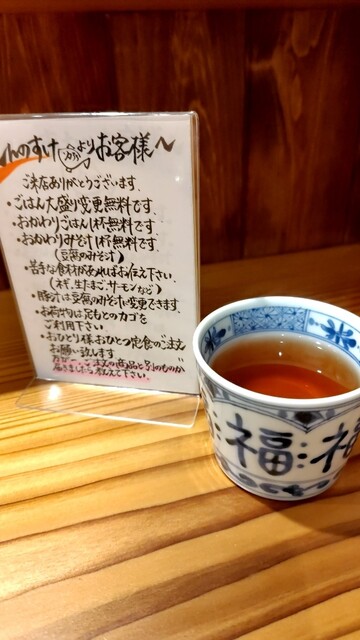 のすけよりお客様へ
ご来店ありがとうございます。
・ごはん大盛り変更無料です。
・おかわりごはん1杯無料です。
・おかわりみそ汁1杯無料です。
(豆腐のみそ汁)
・苦手な食材があればお伝え下さい。
(ネギ、生たまご、サーモンなど)
・豚汁は豆腐のみそ汁に変更できます。
・お荷物は足もとのカゴを
ご利用下さい
・おひとり様おひとつ定食のご注文
お願い致します
ご注文の商品と別のものが
届きましたら教えて下さい。
福 福